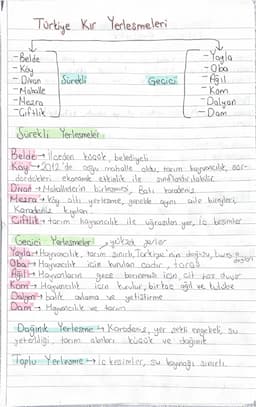 Türkiye Kır Yerleşmeleri
- Belde
- Köy
- Divan
- Mahalle
- Mezra
- Çiftlik
Sürekli
Geçici
- Yayla
- Oba
- Ağıl
- Kom
- Dalyan
- Dam
Sürekli Yerleşmeler
Belde → İlçeden küçük, belediyeli
Köy → 2012'de çoğu mahalle oldu, tarım hayvancılık,
ekonomik etkinlik ile sınıflandırılabilir
Divan → Mahallelerin birleşmesi, Batı Karadeniz
Mezra → Köy altı yerleşme, genelde aynı aile bireyleri,
Karadeniz kıyıları
Çiftlik → tarım hayvancılık ile uğraşılan yer, iç kesimler
Geçici Yerleşmeler yüksek yerler
Yayla → Hayvancılık, tarım sınırlı, Türkiye'nin doğusu,
Oba → Hayvancılık için kurulan çadır, toros
Ağıl → Hayvanların gece barınması için, çit taş duvar
Kom → Hayvancılık için kurulur, birkaç ağıl ve kulübe
Dalyan → balık avlama ve yetiştirme
Dam → Hayvancılık ve tarım
Dağınık Yerleşme → Karadeniz, yer şekli engebeli, su
yeterliliği, tarım alanları küçük ve dağınık
Toplu Yerleşme → İç kesimler, su kaynağı sınırlı.